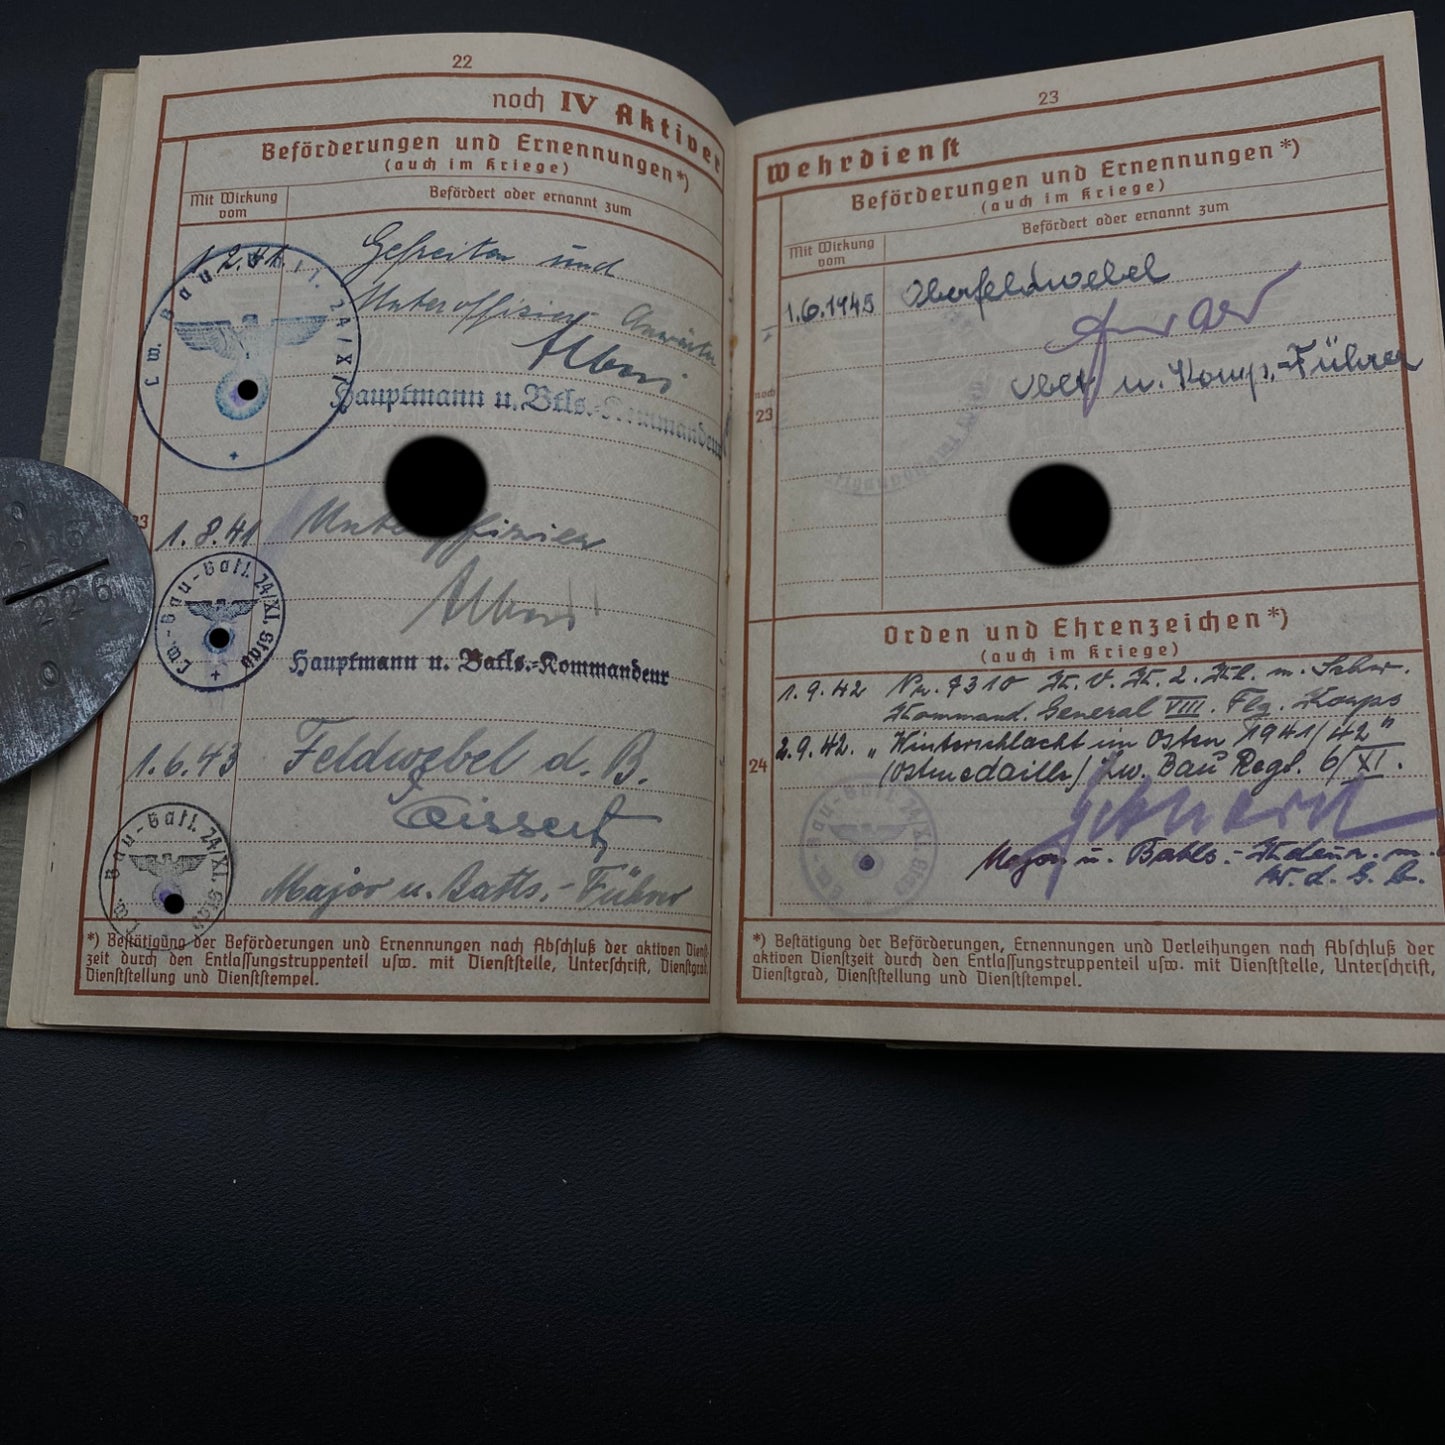 22
noch IV Aktiver
Beförderungen und Ernennungen*)
(auch im Kriege)
Mit Wirkung
vom
Befördert oder ernannt zum
1.2.41. Gefreiten und
Unteroffizier Anwärter
Hauptmann u. Btls.-Kommandeur
Lw. Bau
24/XI
1.8.41 Unteroffizier
Lw.-Bau-Batl. 24/XI. Stab
Hauptmann u. Batls.-Kommandeur
1.6.43 Feldwebel d. B.
Lw. Bau-Batl. 24/XI. Stab
Major u. Batls.-Führer
*) Bestätigung der Beförderungen und Ernennungen nach Abschluß der aktiven Dienst-
zeit durch den Entlassungstruppenteil usw. mit Dienststelle, Unterschrift, Dienstgrad,
Dienststellung und Dienststempel.
23
Wehrdienst
Beförderungen und Ernennungen*)
(auch im Kriege)
Mit Wirkung
vom
Befördert oder ernannt zum
1.6.1945 Oberfeldwebel
u. Komp.-Führer
noch
23
Orden und Ehrenzeichen*)
(auch im Kriege)
1.9.42 Nr. 7310 K. V. K. 2. Kl. m. Schw.
Kommand. General VIII. Flg. Korps
24
2.9.42. „Winterschlacht im Osten 1941/42"
(Ostmedaille) Lw. Bau Regt. 6/XI.
Lw. Bau-Batl. 24/XI. Stab
Major u. Batls.-Kdeur. m.
W. d. G. b.
*) Bestätigung der Beförderungen, Ernennungen und Verleihungen nach Abschluß der
aktiven Dienstzeit durch den Entlassungstruppenteil usw. mit Dienststelle, Unterschrift,
Dienstgrad, Dienststellung und Dienststempel.